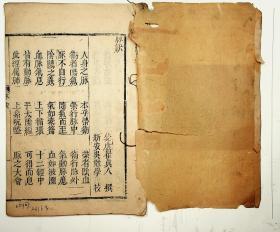 脉訣
紫虛崔眞人 撰
新安吳勉學 校
人身之脉 本乎榮衛 榮者陰血
衛者陽氣 榮行脉中 衛行脉外
脉不自行 隨氣而至 氣動脉應
陰陽之義 氣如橐籥 血如波瀾
血脉氣息 上下循環 十二經中
皆有動脉 手太陰經 可得而息
此經屬肺 上系吭嗌 脉之大會